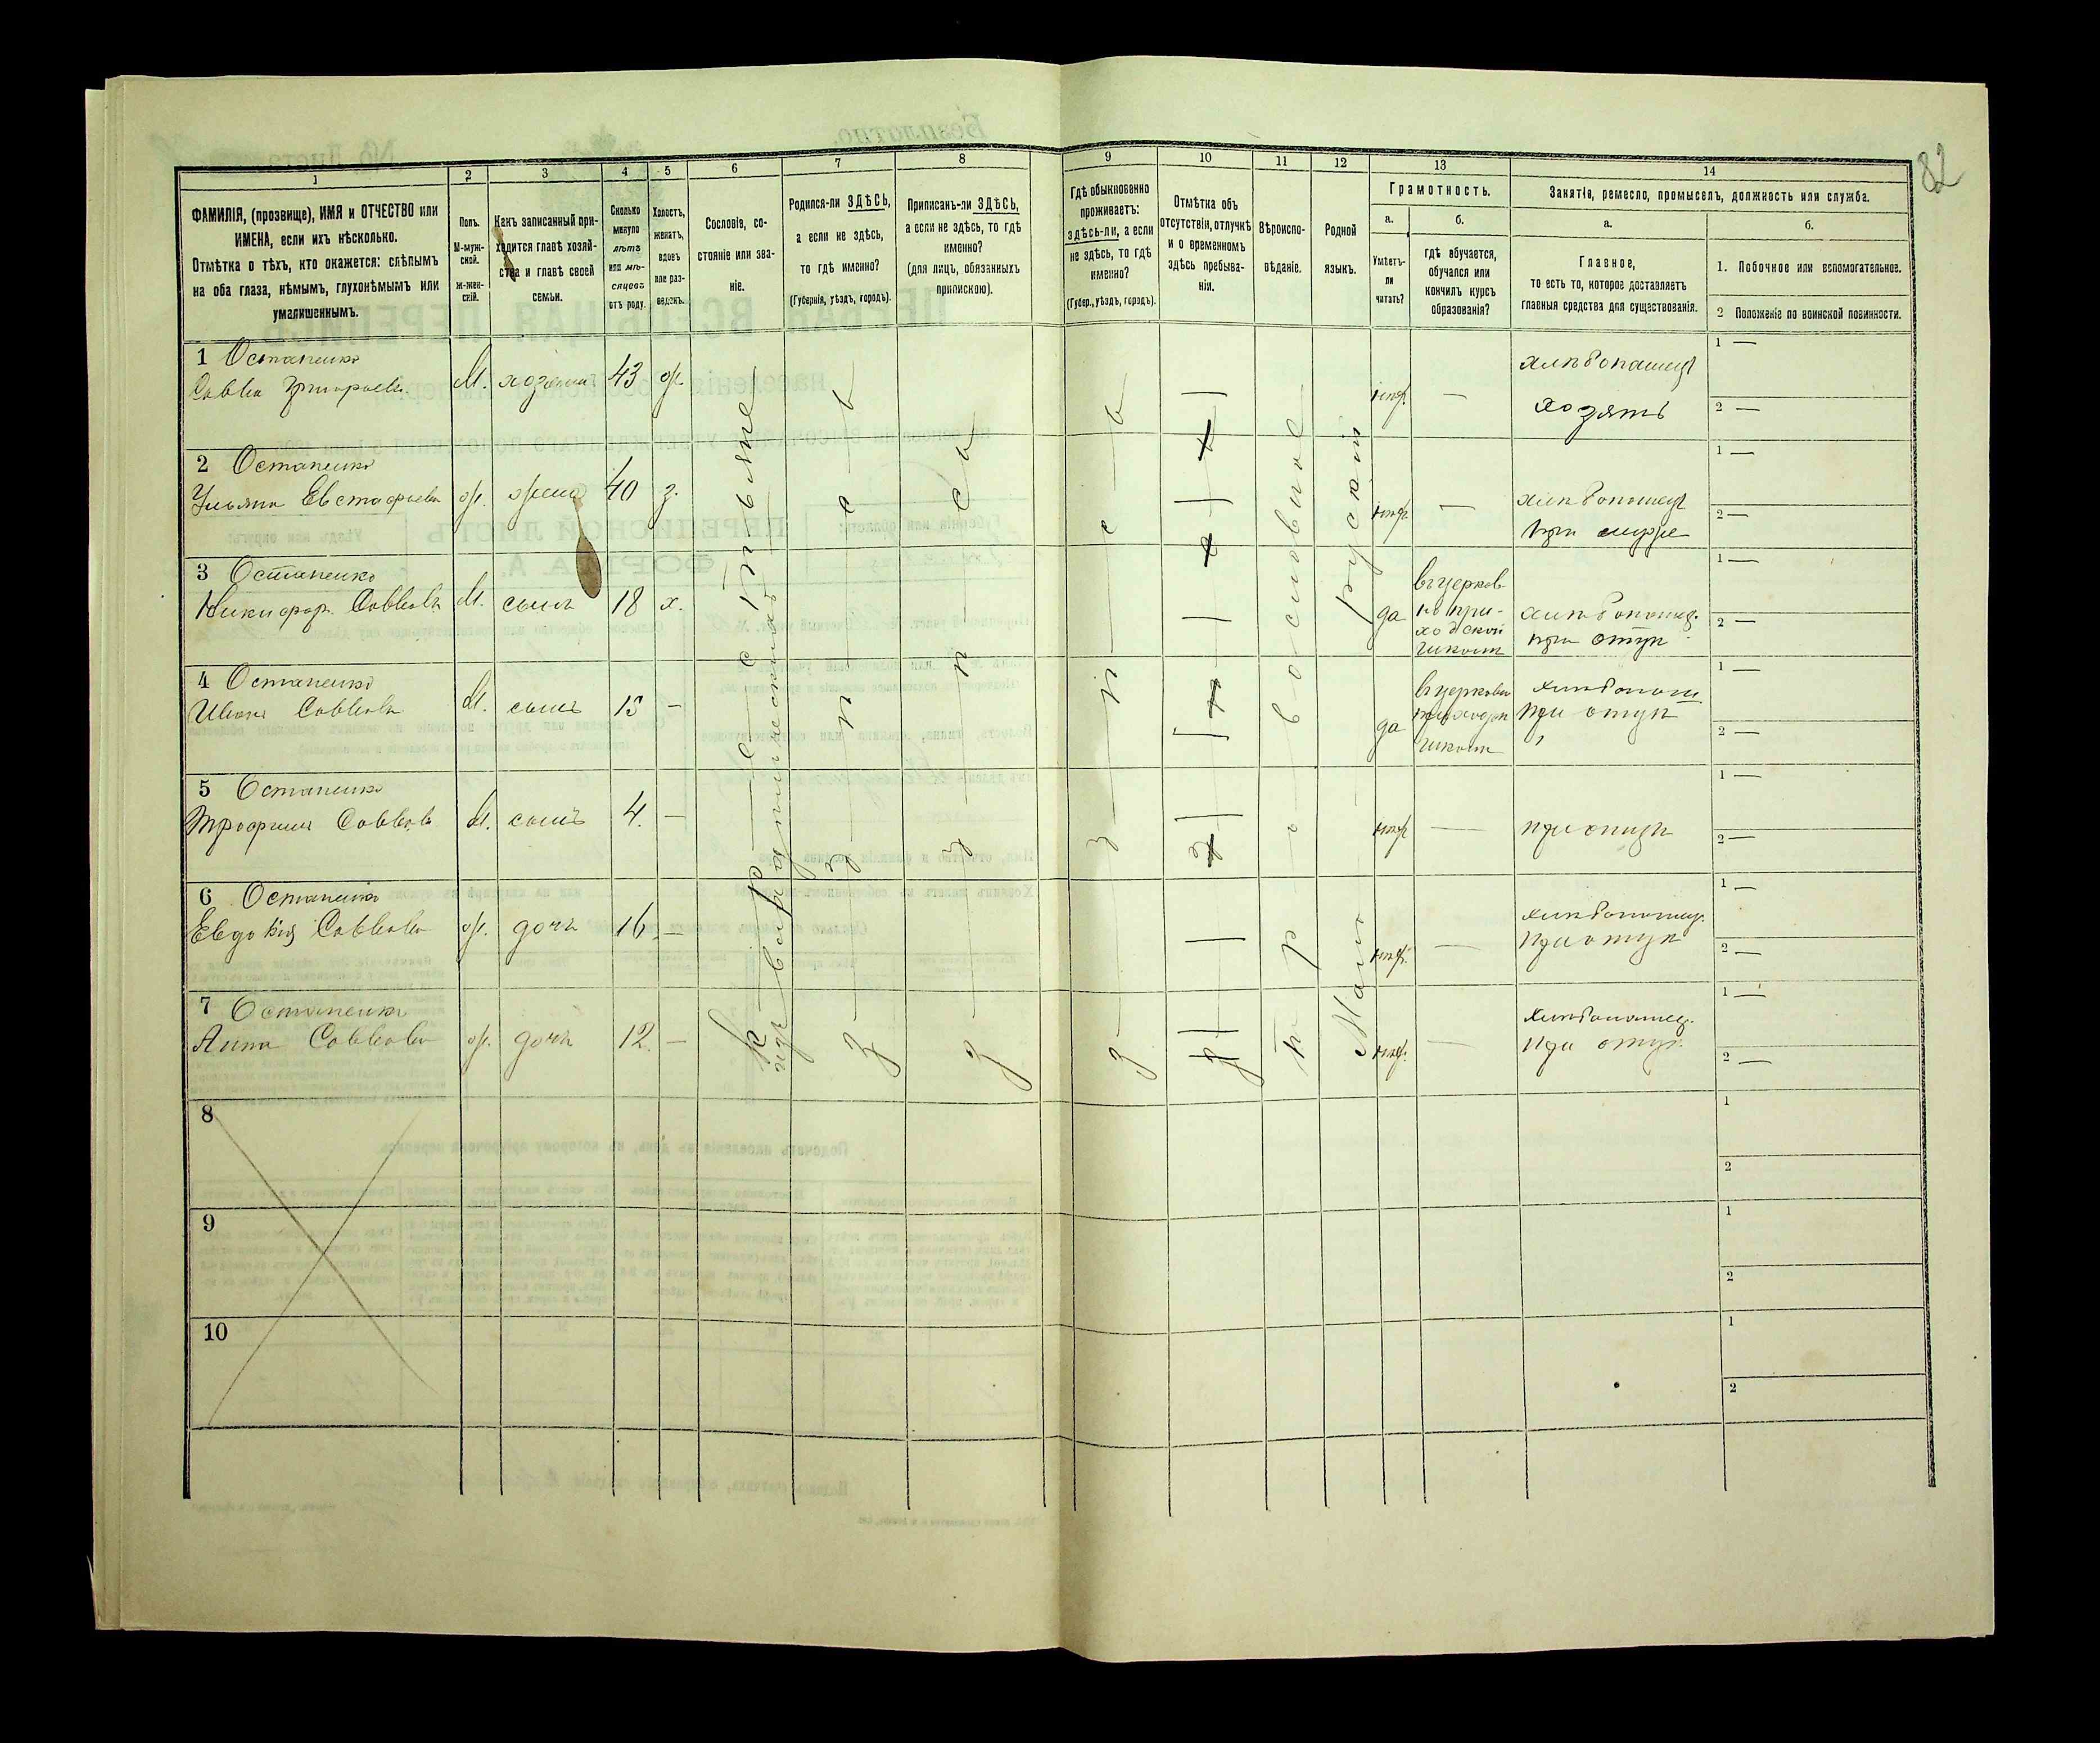 82
1
2
3
4
5
6
7
8
9
10
11
12
13
14
ФАМИЛІЯ, (прозвище), ИМЯ и ОТЧЕСТВО или
ИМЕНА, если ихъ нѣсколько.
Отмѣтка о тѣхъ, кто окажется: слѣпымъ
на оба глаза, нѣмымъ, глухонѣмымъ или
умалишеннымъ.
Полъ.
М-муж-
ской.
ж-жен-
скій.
Какъ записанный при-
ходится главѣ хозяй-
ства и главѣ своей
семьи.
Сколько
минуло
лѣтъ
или мѣ-
сяцевъ
отъ роду.
Холостъ,
женатъ,
вдовъ
или раз-
веденъ.
Сословіе, со-
стояніе или зва-
ніе.
Родился-ли ЗДѢСЬ,
а если не здѣсь,
то гдѣ именно?
(Губернія, уѣздъ, городъ).
Приписанъ-ли ЗДѢСЬ,
а если не здѣсь, то гдѣ
именно?
(для лицъ, обязанныхъ
припискою).
Гдѣ обыкновенно
проживаетъ:
здѣсь-ли, а если
не здѣсь, то гдѣ
именно?
(Губер., уѣздъ, городъ).
Отмѣтка объ
отсутствіи, отлучкѣ
и о временномъ
здѣсь пребыва-
ніи.
Вѣроиспо-
вѣданіе.
Родной
языкъ.
Грамотность.
а.
б.
Умѣетъ-
ли
читать?
гдѣ обучается,
обучался или
кончилъ курсъ
образованія?
Занятія, ремесло, промыселъ, должность или служба.
а.
б.
Главное,
то есть то, которое доставляетъ
главныя средства для существованія.
1. Побочное или вспомогательное.
2 Положеніе по воинской повинности.
1 Остапенко
Савва Григорьевъ М. хозяинъ 43 ж.
хлѣбопашец
хозяинъ
1 —
2 —
2 Остапенко
Ульяна Евстафьева ж. жена 40 з.
хлѣбопашец
при мужѣ
1 —
2 —
3 Остапенко
Никифор. Саввовъ М. сынъ 18 х. да
въ церков-
но при-
ходской
школѣ
хлѣбопашец.
при отцѣ
1 —
2 —
4 Остапенко
Иванъ Саввовъ М. сынъ 15 — да
при отцѣ
1 —
2 —
5 Остапенко
Трофимъ Саввовъ М. сынъ 4. —
при отцѣ
1 —
2 —
6 Остапенко
Евдокія Саввова ж. дочь 16 —
хлѣбопашец.
при отцѣ
1 —
2 —
7 Остапенко
Анна Саввова ж. дочь 12. —
хлѣбопашец.
при отцѣ
1 —
2 —
крестьяне
здѣсь
здѣсь
здѣсь
православное
Мало-рускій
8
1
2
9
1
2
10
1
2